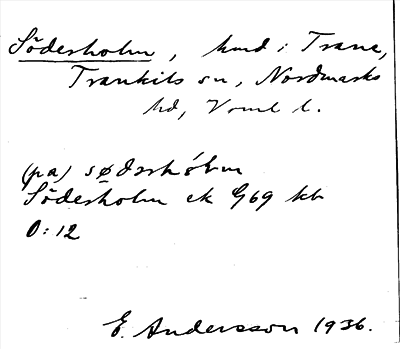 Söderholm, hmd i Trane,
Trankils sn, Nordmarks
hd, Vrml l.
(på)
Söderholm ek G69 kb
O:12
E. Andersson 1936.